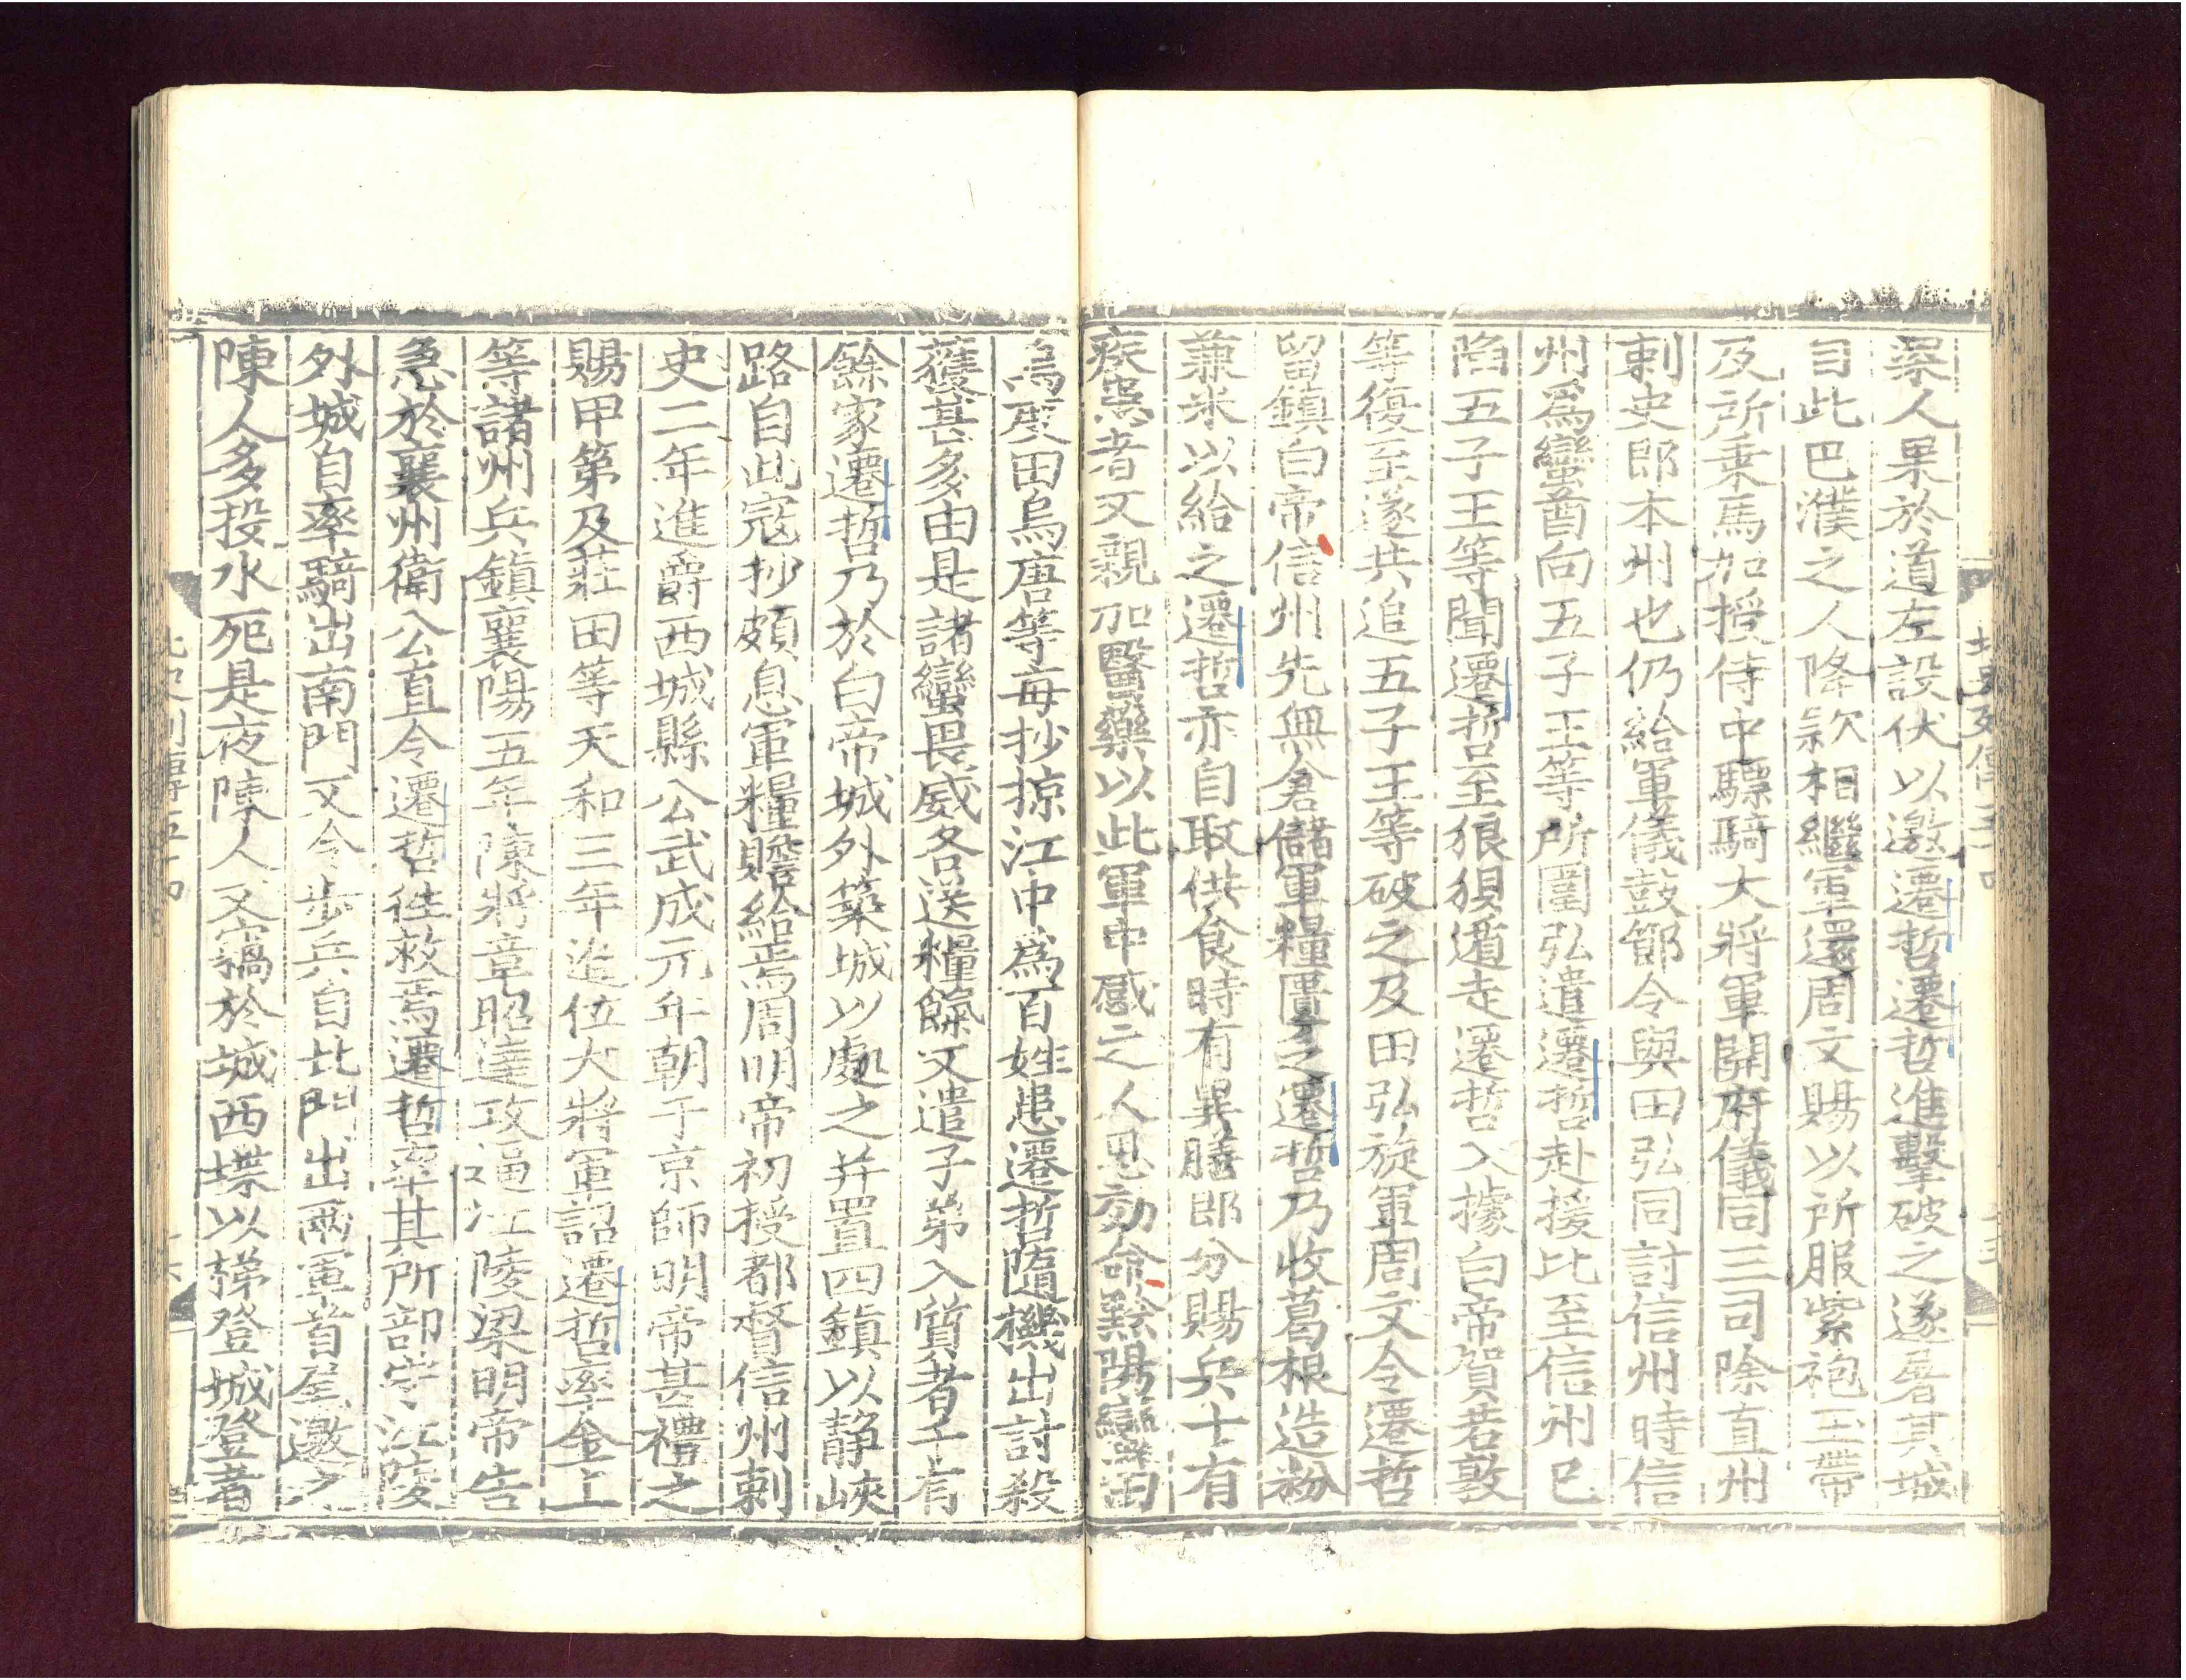 梁人果於道左設伏以邀遷哲遷哲進擊破之遂屠其城
自此巴濮之人降款相繼軍還周文賜以所服紫袍玉帶
及所乗馬加授侍中驃騎大將軍開府儀同三司除直州
刺史郎本州也仍給軍儀鼓節令與田弘同討信州時信
州爲蠻酋向五子王等所圍弘遣遷哲赴援比至信州已
陷五子王等聞遷哲至狼狽遁走遷哲入據白帝賀若敦
等復至遂共追五子王等破之及田弘旋軍周文令遷哲
留鎮白帝信州先無倉儲軍糧匱乏遷哲乃收葛根造粉
兼米以給之遷哲亦自取供食時有異膳郎分賜兵士有
疾患者又親加醫藥以此軍中感之人思効命黔陽蠻田
烏度田烏唐等每抄掠江中爲百姓患遷哲隨機出討殺
獲甚多由是諸蠻畏威各送糧餼又遣子弟入質者千有
餘家遷哲乃於白帝城外築城以處之并置四鎮以靜峽
路自此寇抄頗息軍糧贍給焉周明帝初授都督信州刺
史二年進爵西城縣公武成元年朝于京師明帝甚禮之
賜甲第及莊田等天和三年進位大將軍詔遷哲率金上
等諸州兵鎮襄陽五年陳將章昭達攻逼江陵梁明帝告
急於襄州衛公直令遷哲往救焉遷哲率其所部守江陵
外城自率騎出南門又令步兵自北門出兩軍首尾邀之
陳人多投水死是夜陳人又竊於城西堞以梯登城登者
北史列傳五十四